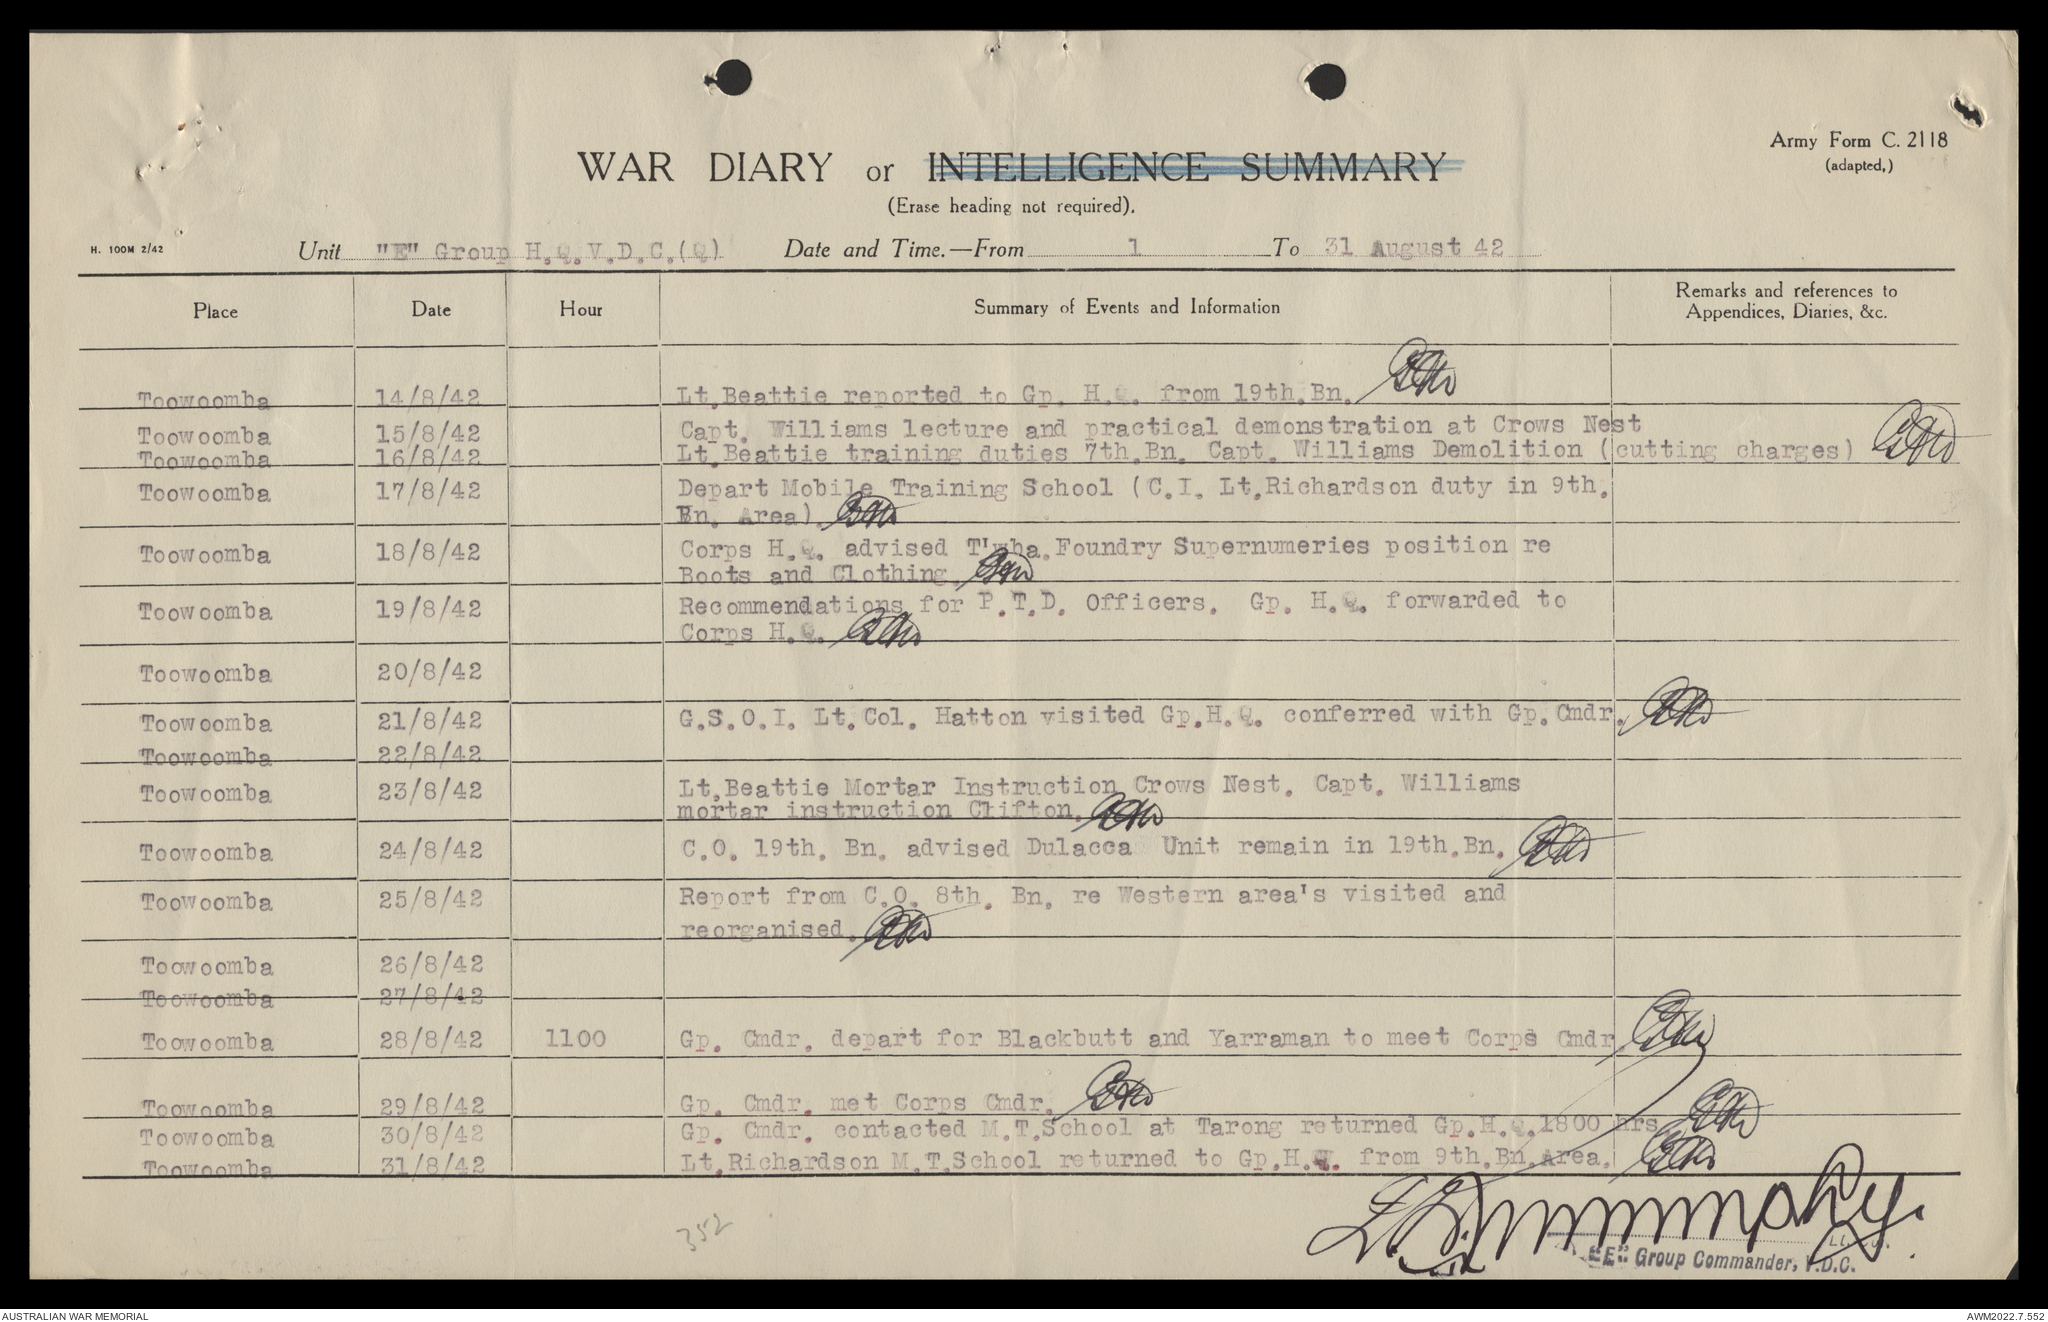 Army Form C. 2118
(adapted,)
WAR DIARY or INTELLIGENCE SUMMARY
(Erase heading not required).
H. 100M 2/42
Unit "E" Group H.Q.V.D.C.(Q) Date and Time.—From 1 To 31 August 42
Place Date Hour Summary of Events and Information Remarks and references to
Appendices, Diaries, &c.
Toowoomba 14/8/42 Lt.Beattie reported to Gp. H.Q. from 19th.Bn.
Toowoomba 15/8/42 Capt. Williams lecture and practical demonstration at Crows Nest
Toowoomba 16/8/42 Lt.Beattie training duties 7th.Bn. Capt. Williams Demolition (cutting charges)
Toowoomba 17/8/42 Depart Mobile Training School (C.I. Lt.Richardson duty in 9th.
Bn. Area).
Toowoomba 18/8/42 Corps H.Q. advised T'wba.Foundry Supernumeries position re
Boots and Clothing.
Toowoomba 19/8/42 Recommendations for P.T.D. Officers. Gp. H.Q. forwarded to
Corps H.Q.
Toowoomba 20/8/42
Toowoomba 21/8/42 G.S.O.I. Lt.Col. Hatton visited Gp.H.Q. conferred with Gp.Cmdr.
Toowoomba 22/8/42
Toowoomba 23/8/42 Lt.Beattie Mortar Instruction Crows Nest. Capt. Williams
mortar instruction Clifton.
Toowoomba 24/8/42 C.O. 19th. Bn. advised Dulacca Unit remain in 19th.Bn.
Toowoomba 25/8/42 Report from C.O. 8th. Bn. re Western area's visited and
reorganised.
Toowoomba 26/8/42
Toowoomba 27/8/42
Toowoomba 28/8/42 1100 Gp. Cmdr. depart for Blackbutt and Yarraman to meet Corps Cmdr
Toowoomba 29/8/42 Gp. Cmdr. met Corps Cmdr.
Toowoomba 30/8/42 Gp. Cmdr. contacted M.T.School at Tarong returned Gp.H.Q.1800 hrs
Toowoomba 31/8/42 Lt.Richardson M.T.School returned to Gp.H.Q. from 9th.Bn.Area.
352
"E" Group Commander, V.D.C.
AUSTRALIAN WAR MEMORIAL AWM2022.7.552